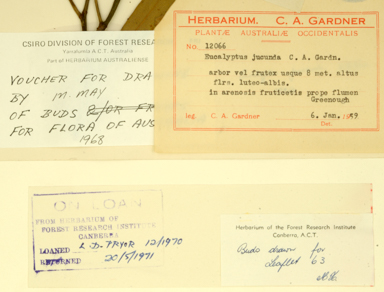 CSIRO DIVISION OF FOREST RESEA
Yarralumla A.C.T. Australia
Part of HERBARIUM AUSTRALIENSE
VOUCHER FOR DRA
BY M. MAY
OF BUDS &/OR FR
FOR FLORA OF AUS
1968
HERBARIUM. C. A. GARDNER
PLANTÆ AUSTRALIÆ OCCIDENTALIS
No. 12066
Eucalyptus jucunda C. A. Gardn.
arbor vel frutex usque 8 met. altus
flrs. luteo-albis.
in arenosis fruticetis prope flumen
Greenough
leg. C. A. Gardner 6. Jan. 1959
Det.
ON LOAN
FROM HERBARIUM OF
FOREST RESEARCH INSTITUTE
CANBERRA
LOANED L. D. PRYOR 12/1970
RETURNED 20/5/1971
Herbarium of the Forest Research Institute
Canberra, A.C.T.
Buds drawn for
Leaflet 63